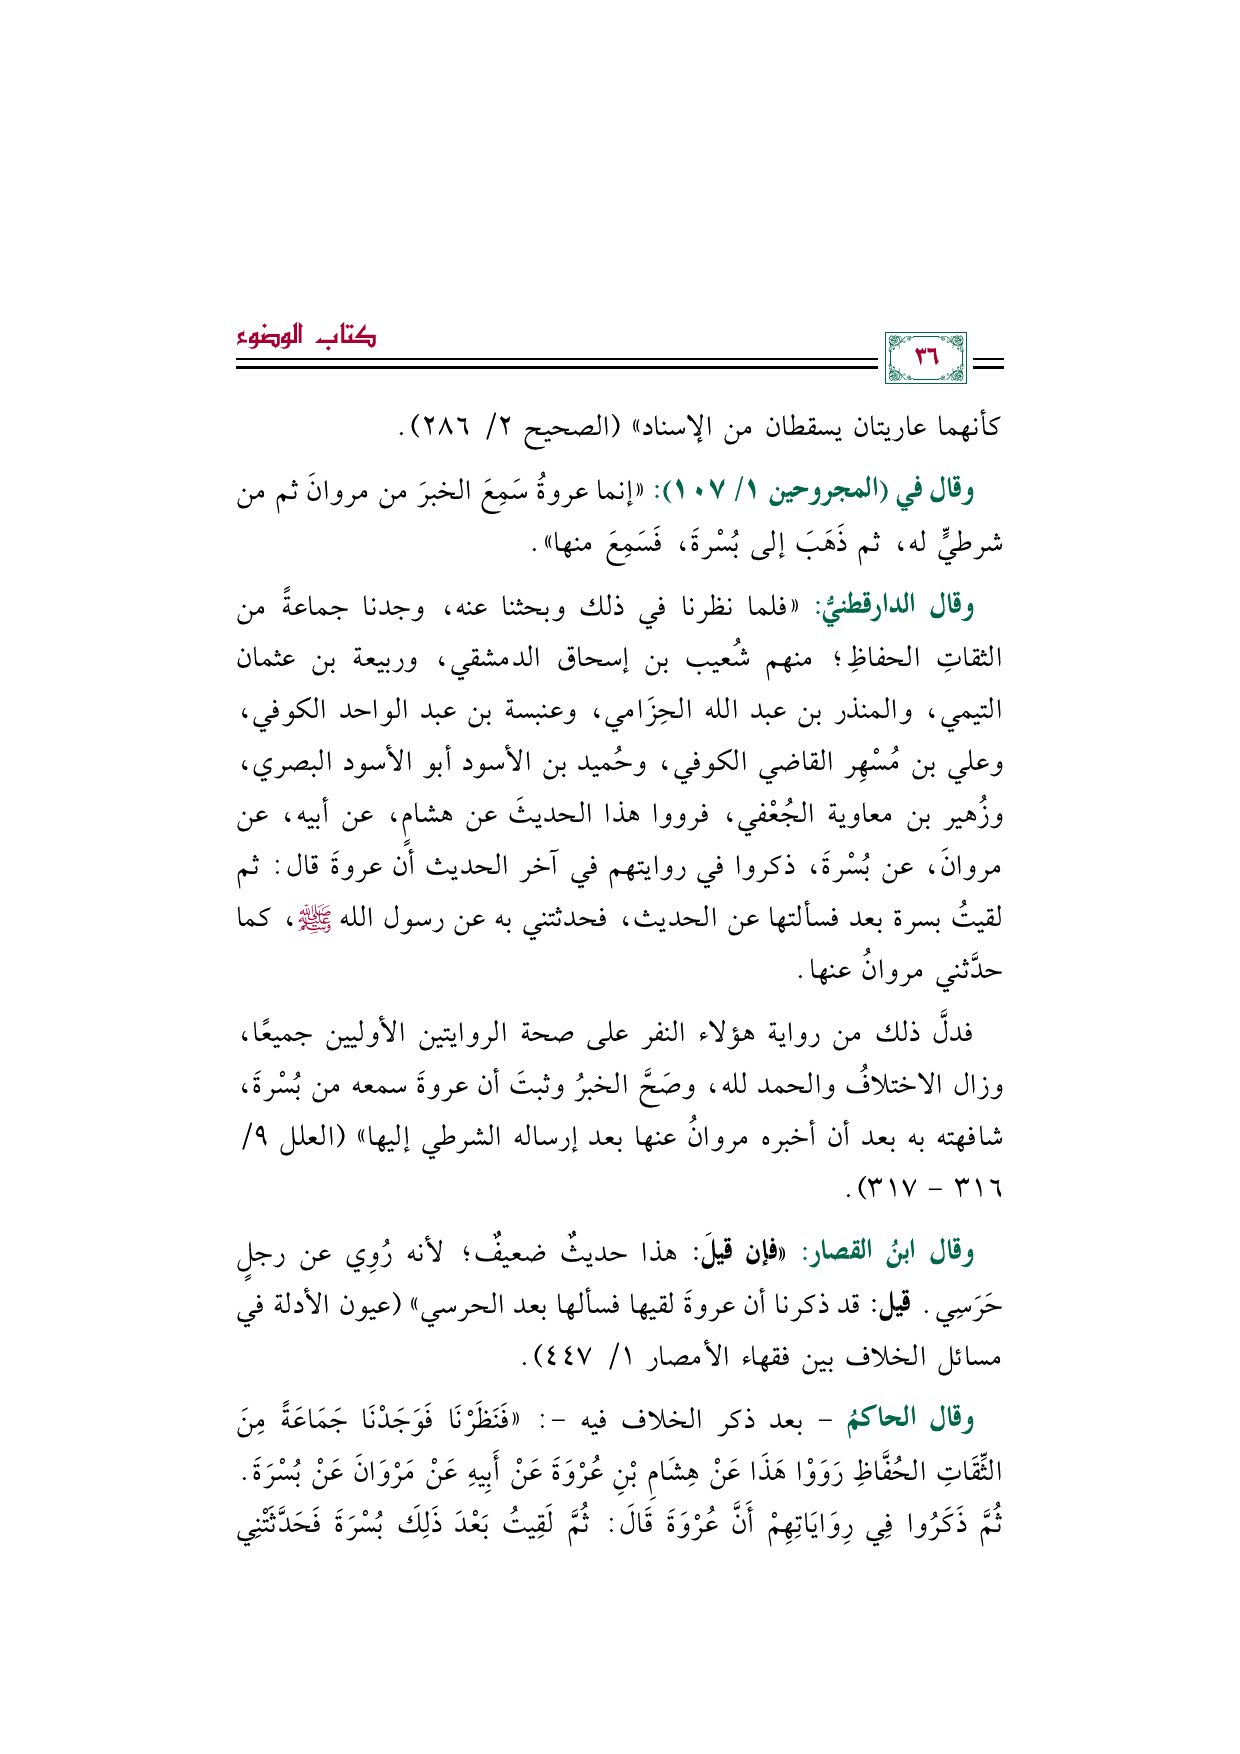 كتاب الوضوء
٣٦
كأنهما عاريتان يسقطان من الإسناد» (الصحيح ٢/ ٢٨٦).
وقال في (المجروحين ١/ ١٠٧): «إنما عروةُ سَمِعَ الخبرَ من مروانَ ثم من
شرطيٍّ له، ثم ذَهَبَ إلى بُسْرةَ، فَسَمِعَ منها».
وقال الدارقطنيُّ: «فلما نظرنا في ذلك وبحثنا عنه، وجدنا جماعةً من
الثقاتِ الحفاظِ؛ منهم شُعيب بن إسحاق الدمشقي، وربيعة بن عثمان
التيمي، والمنذر بن عبد الله الحِزَامي، وعنبسة بن عبد الواحد الكوفي،
وعلي بن مُسْهِر القاضي الكوفي، وحُميد بن الأسود أبو الأسود البصري،
وزُهير بن معاوية الجُعْفي، فرووا هذا الحديثَ عن هشامٍ، عن أبيه، عن
مروانَ، عن بُسْرةَ، ذكروا في روايتهم في آخر الحديث أن عروةَ قال: ثم
لقيتُ بسرة بعد فسألتها عن الحديث، فحدثتني به عن رسول الله ﷺ، كما
حدَّثني مروانُ عنها.
فدلَّ ذلك من رواية هؤلاء النفر على صحة الروايتين الأوليين جميعًا،
وزال الاختلافُ والحمد لله، وصَحَّ الخبرُ وثبتَ أن عروةَ سمعه من بُسْرةَ،
شافهته به بعد أن أخبره مروانُ عنها بعد إرساله الشرطي إليها» (العلل ٩/
٣١٦ - ٣١٧).
وقال ابنُ القصار: «فإن قيلَ: هذا حديثٌ ضعيفٌ؛ لأنه رُوِي عن رجلٍ
حَرَسِي. قيل: قد ذكرنا أن عروةَ لقيها فسألها بعد الحرسي» (عيون الأدلة في
مسائل الخلاف بين فقهاء الأمصار ١/ ٤٤٧).
وقال الحاكمُ - بعد ذكر الخلاف فيه -: «فَنَظَرْنَا فَوَجَدْنَا جَمَاعَةً مِنَ
الثِّقَاتِ الحُفَّاظِ رَوَوْا هَذَا عَنْ هِشَامِ بْنِ عُرْوَةَ عَنْ أَبِيهِ عَنْ مَرْوَانَ عَنْ بُسْرَةَ.
ثُمَّ ذَكَرُوا فِي رِوَايَاتِهِمْ أَنَّ عُرْوَةَ قَالَ: ثُمَّ لَقِيتُ بَعْدَ ذَلِكَ بُسْرَةَ فَحَدَّثَتْنِي